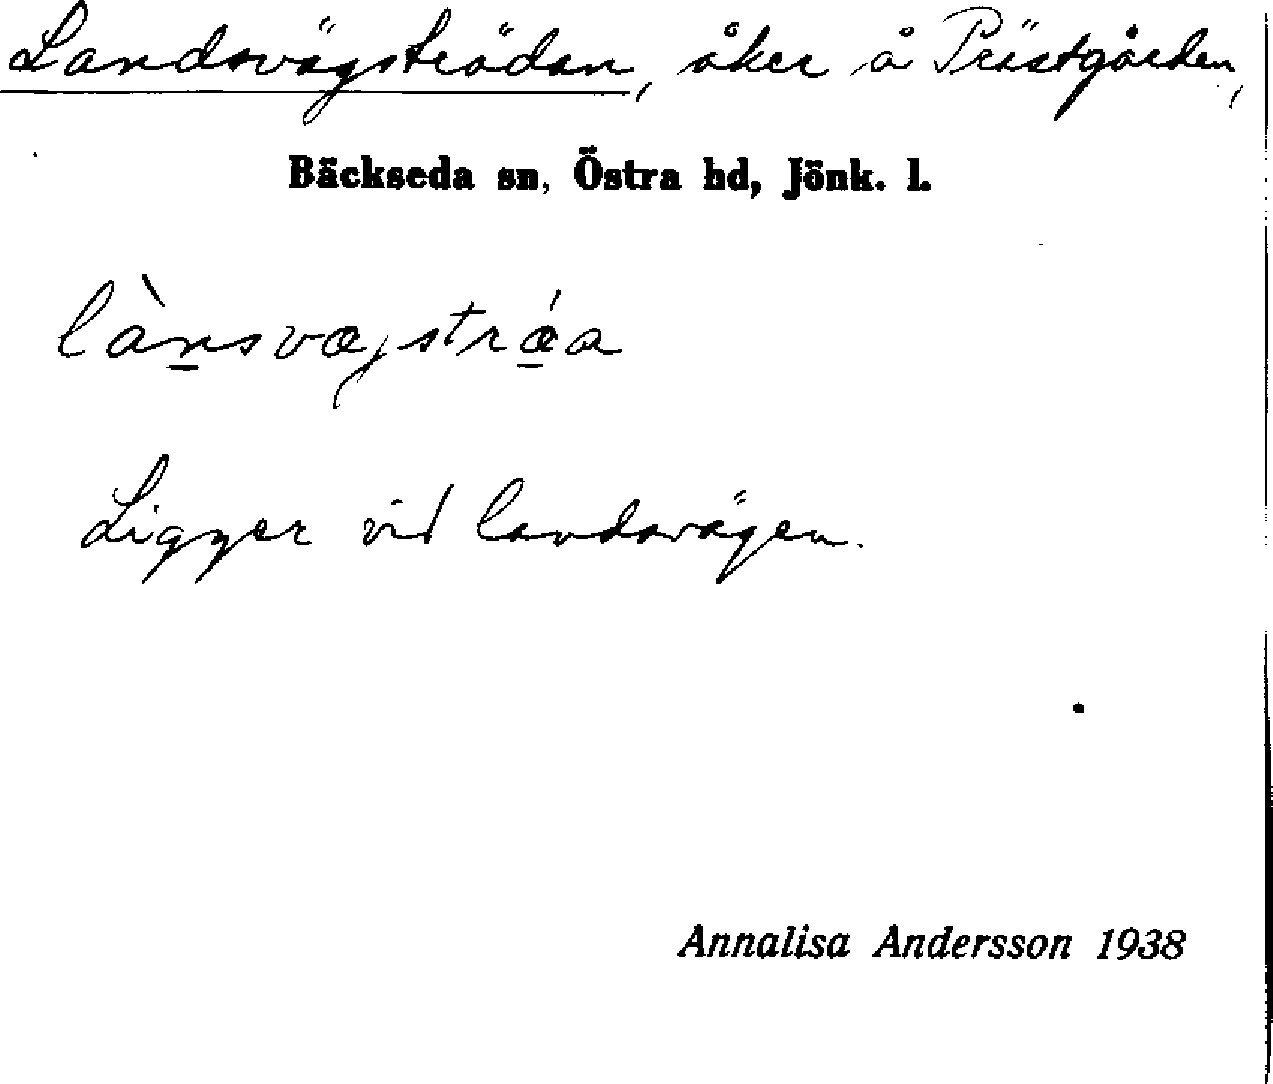 Landsvägsträdan, åker å Prästgården,
Bäckseda sn, Östra hd, Jönk. l.
là̱nsvæjstrǽ̱a
Ligger vid landsvägen.
Annalisa Andersson 1938